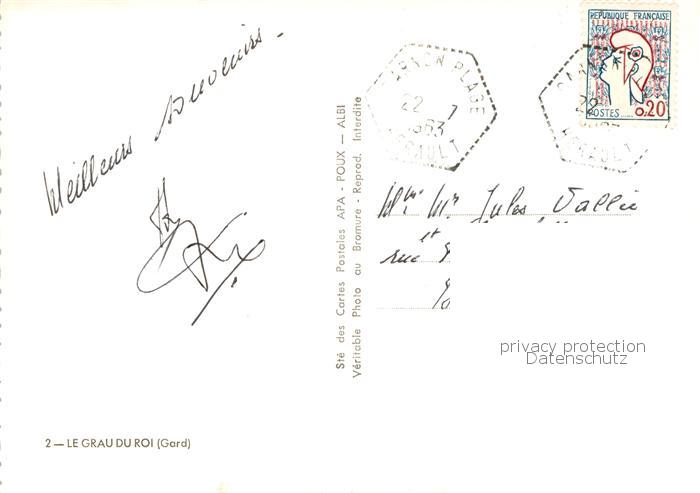 Meilleurs souvenirs.
2 — LE GRAU DU ROI (Gard)
Sté des Cartes Postales APA - POUX — ALBI
Véritable Photo au Bromure - Reprod. Interdite
PLAGE
22 7
1963
HERAULT
22
REPUBLIQUE FRANÇAISE
POSTES 0,20
Jules Vallie
et
rue
privacy protection
Datenschutz